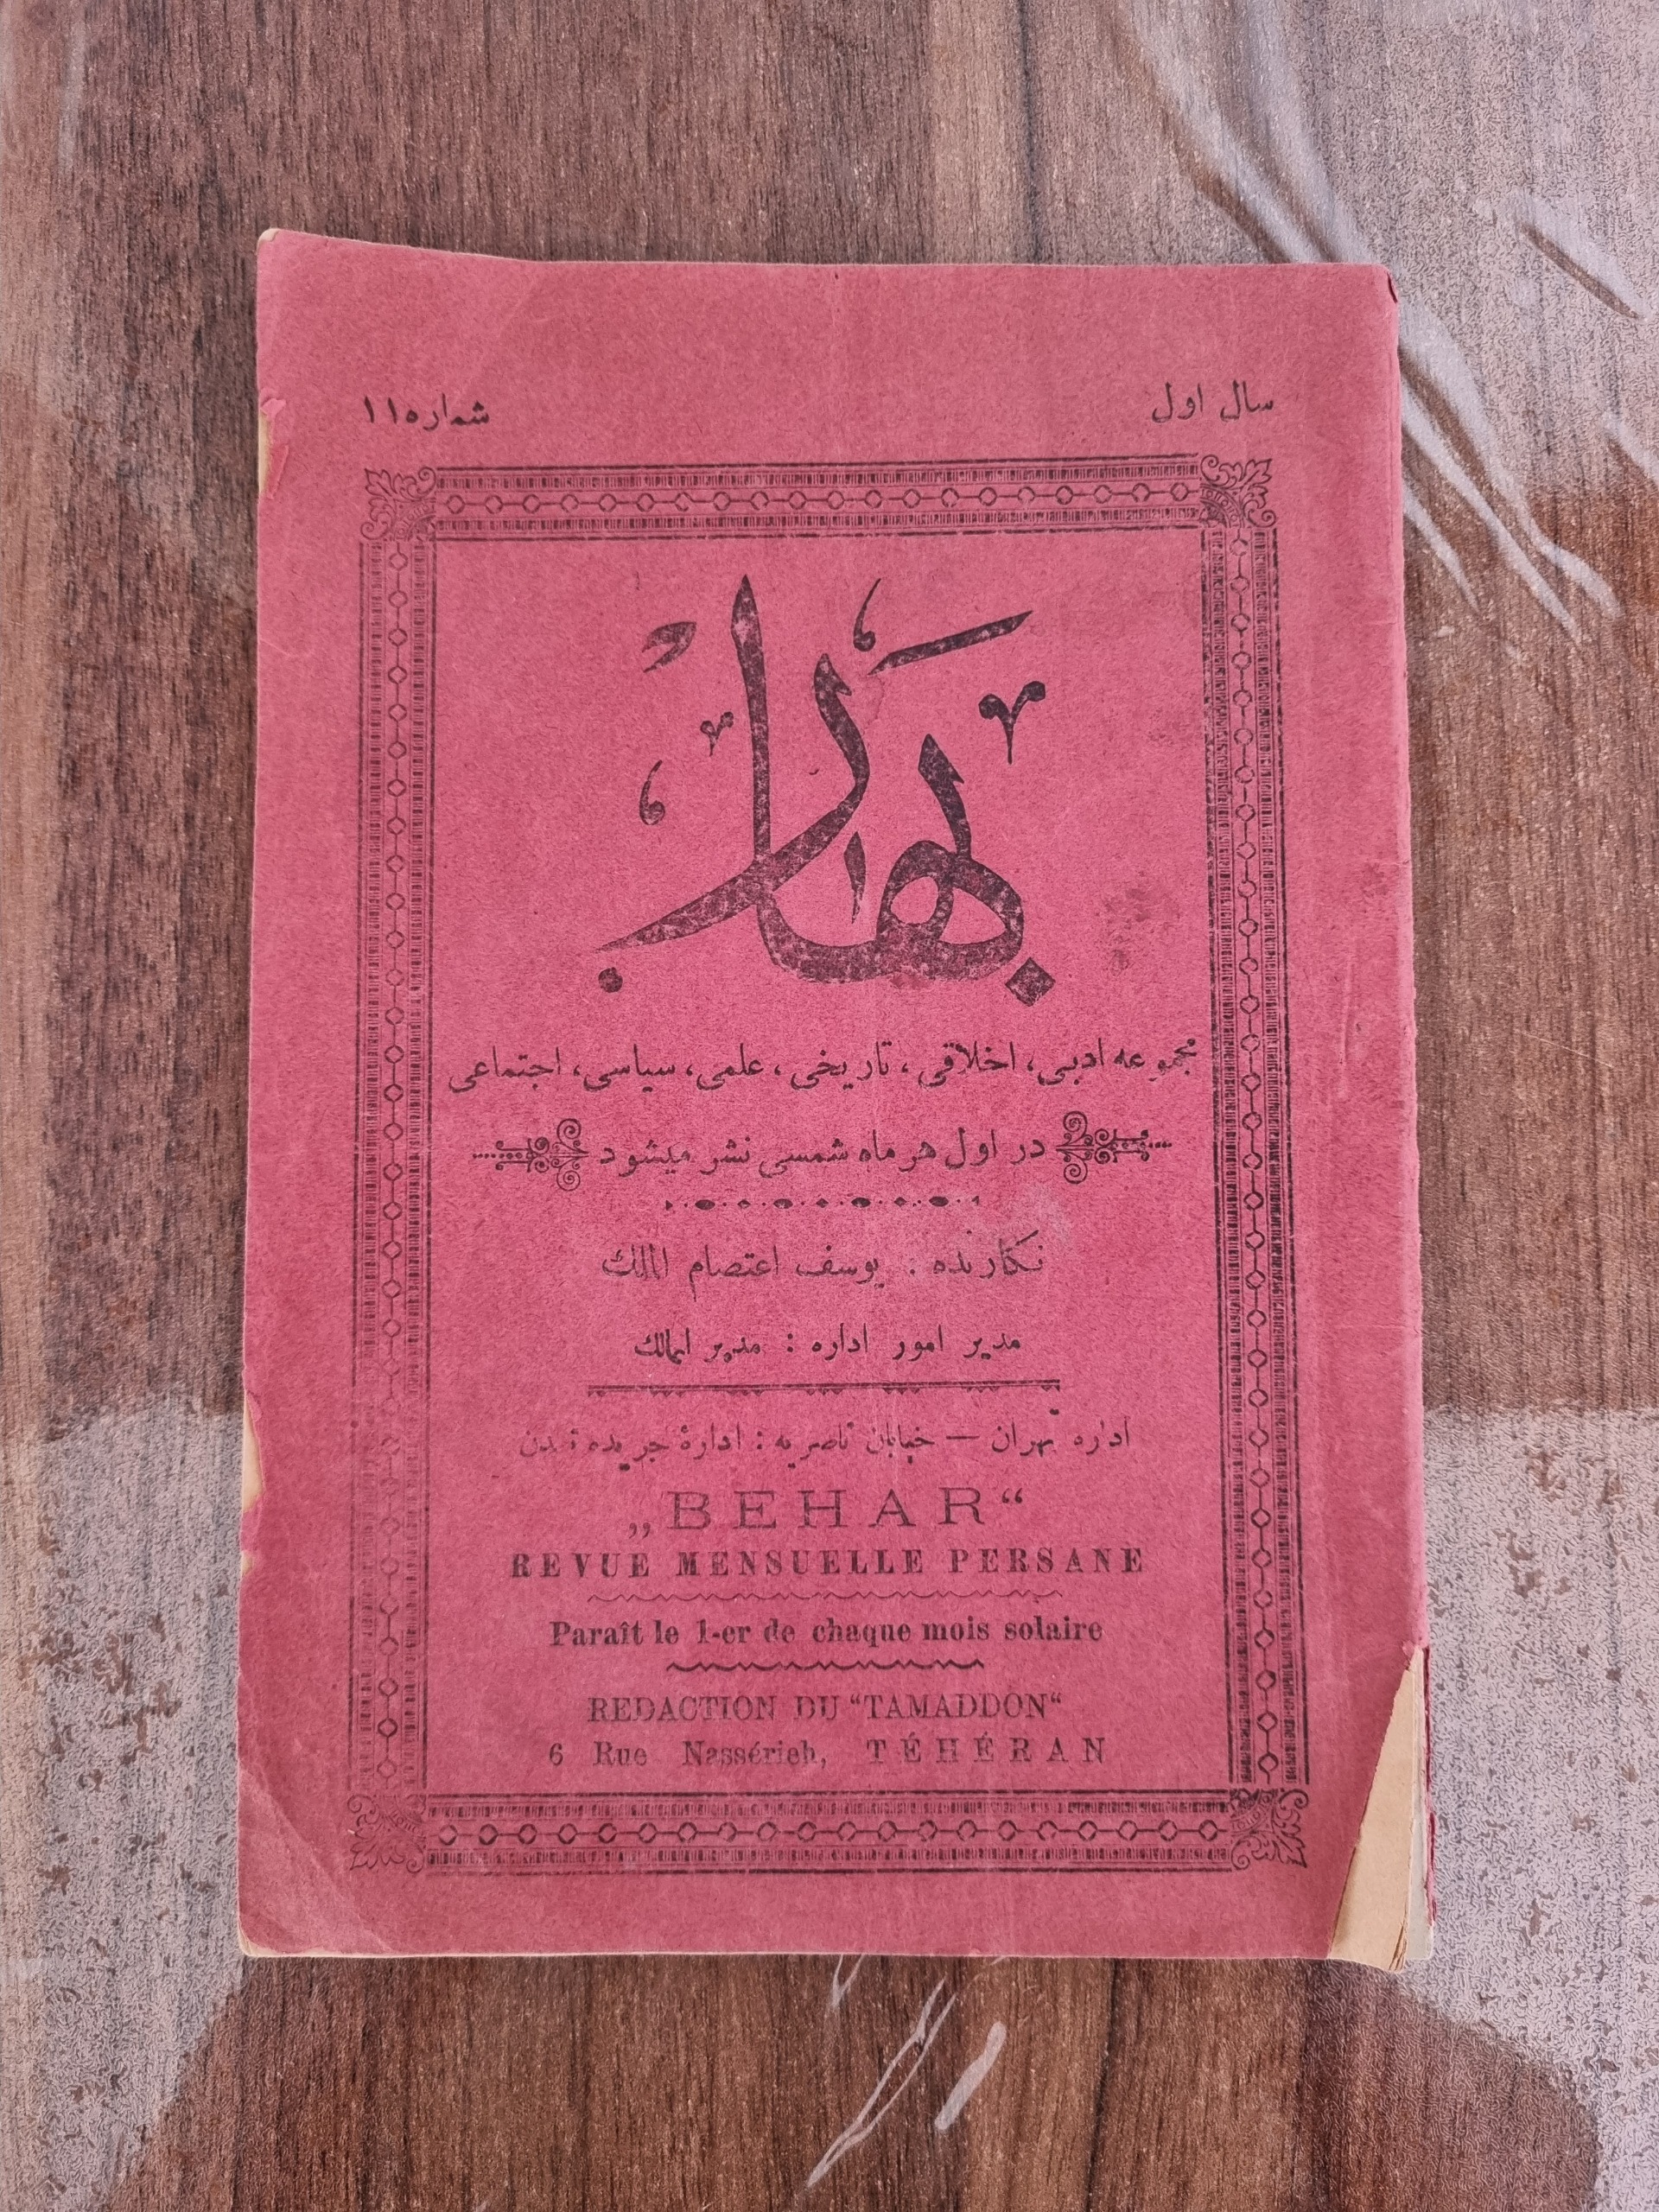 سال اول
شماره ۱۱
بهار
مجموعه ادبی، اخلاقی، تاریخی، علمی، سیاسی، اجتماعی
در اول هر ماه شمسی نشر میشود
نکارنده : یوسف اعتصام الملک
مدیر امور اداره : مدیر الممالک
اداره تهران — خیابان ناصریه : ادارهٔ جریده تمدن
„BEHAR“
REVUE MENSUELLE PERSANE
Paraît le 1-er de chaque mois solaire
REDACTION DU “TAMADDON“
6 Rue Nassérieh, TÉHÉRAN